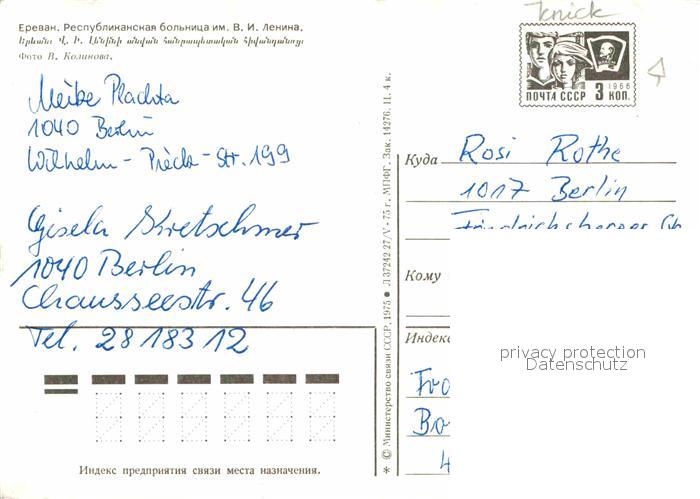 Knick
Ереван. Республиканская больница им. В. И. Ленина.
Երևան։ Վ. Ի. Լենինի անվան հանրապետական հիվանդանոց։
Фото В. Колинова.
1966
ПОЧТА СССР 3 КОП.
Meike Plachta
1040 Berlin
Wilhelm-Pieck-Str. 199
Gisela Kretschmer
1040 Berlin
Chausseestr. 46
Tel. 28 183 12
* © Министерство связи СССР, 1975 ● Л 37242 27/V-75 г. МПФГ. Зак. 14276. Ц. 4 к.
Куда Rosi Rothe
1017 Berlin
Friedrichsberger St
Кому
Индекс
privacy protection
Datenschutz
Fro
Bo
4
Индекс предприятия связи места назначения.